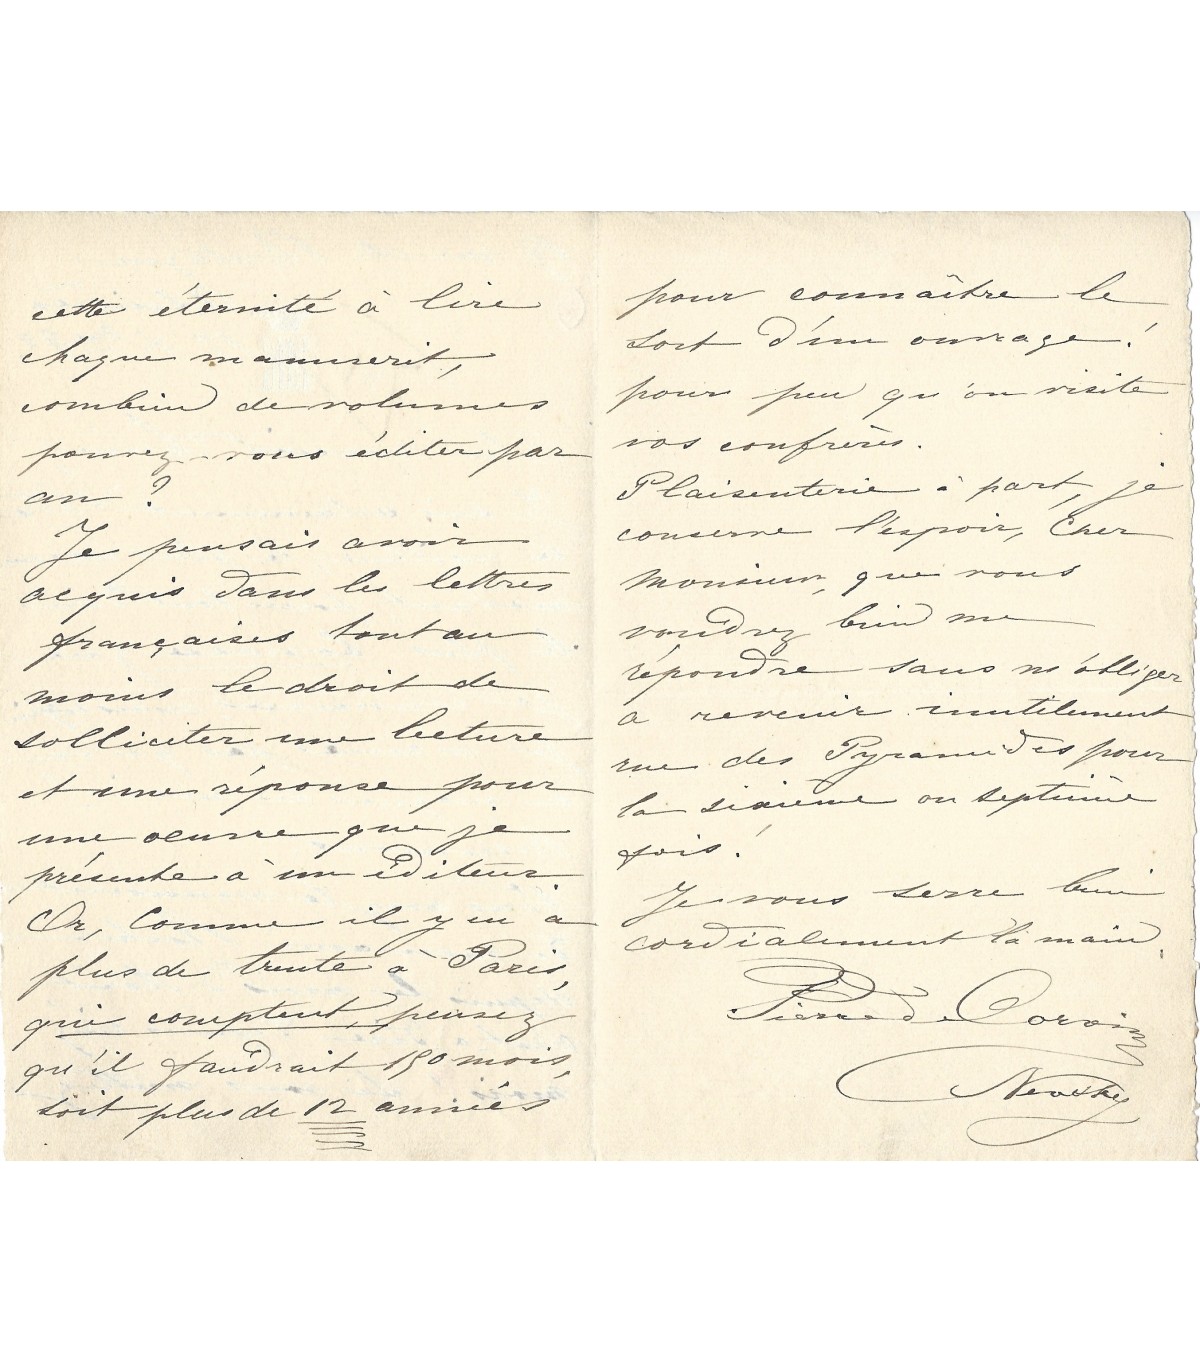 cette éternité à lire
chaque manuscrit,
combien de volumes
pouvez-vous éditer par
an ?
Je pensais avoir
acquis dans les lettres
françaises tout au
moins le droit de
solliciter une lecture
et une réponse pour
une œuvre que je
présente à un éditeur.
Or, comme il y en a
plus de trente à Paris,
qui comptent, pensez
qu'il faudrait 150 mois,
soit plus de 12 années
pour connaître le
sort d'un ouvrage !
pour peu qu'on visite
vos confrères.
Plaisenterie à part, je
conserve l'espoir, Cher
Monsieur, que vous
voudrez bien me
répondre sans m'obliger
a revenir inutilement
rue des Pyramides pour
la sixième ou septième
fois !
Je vous serre bien
cordialement la main.
Pierre de Corvin
Nevsky